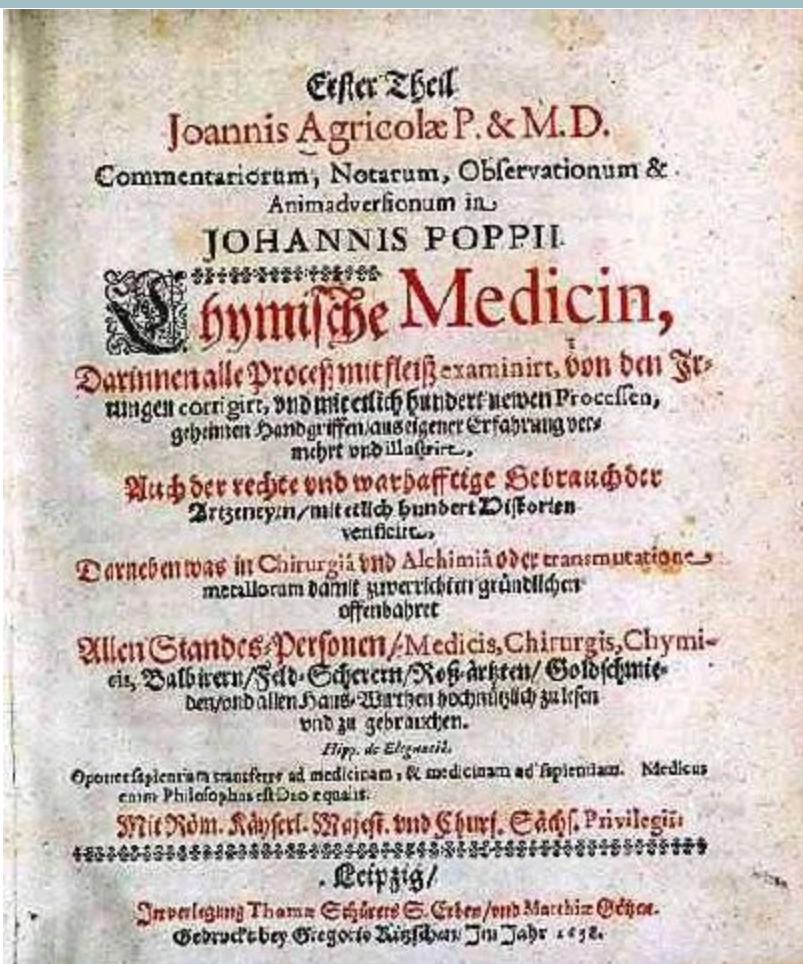 Erster Theil
Joannis Agricolæ P. & M.D.
Commentariorum, Notarum, Observationum &
Animadversionum in
JOHANNIS POPPII
Chymische Medicin,
Darinnen alle Proceß mit fleiß examinirt, von den Ir-
rungen corrigirt, vnd mit etlich hundert newen Processen,
geheimen Handgriffen/aus eigener Erfahrung ver-
mehrt vnd illustrirt,
Auch der rechte vnd warhafftige Gebrauch der
Artzeneyen/mit etlich hundert Historien
verificirt,
Darneben was in Chirurgiâ vnd Alchimiâ oder transmutatione
metallorum damit zuverrichten gründlichen
offenbahret
Allen Standes-Personen/Medicis, Chirurgis, Chymi-
cis, Balbirern/Feld-Scherern/Roß-ärtzten/Goldschmie-
den/vnd allen Haus-Wirthen hochnützlich zu lesen
vnd zu gebrauchen.
Hipp. de Elegantiâ.
Oportet sapientiam transferre ad medicinam, & medicinam ad sapientiam. Medicus
enim Philosophus est Deo equalis.
Mit Röm. Käyserl. Majest. vnd Churf. Sächs. Privilegiis
Leipzig/
In verlegung Thomæ Schürers S. Erben/vnd Matthiæ Götzen.
Gedruckt bey Gregorio Ritzschen/Im Jahr 1638.